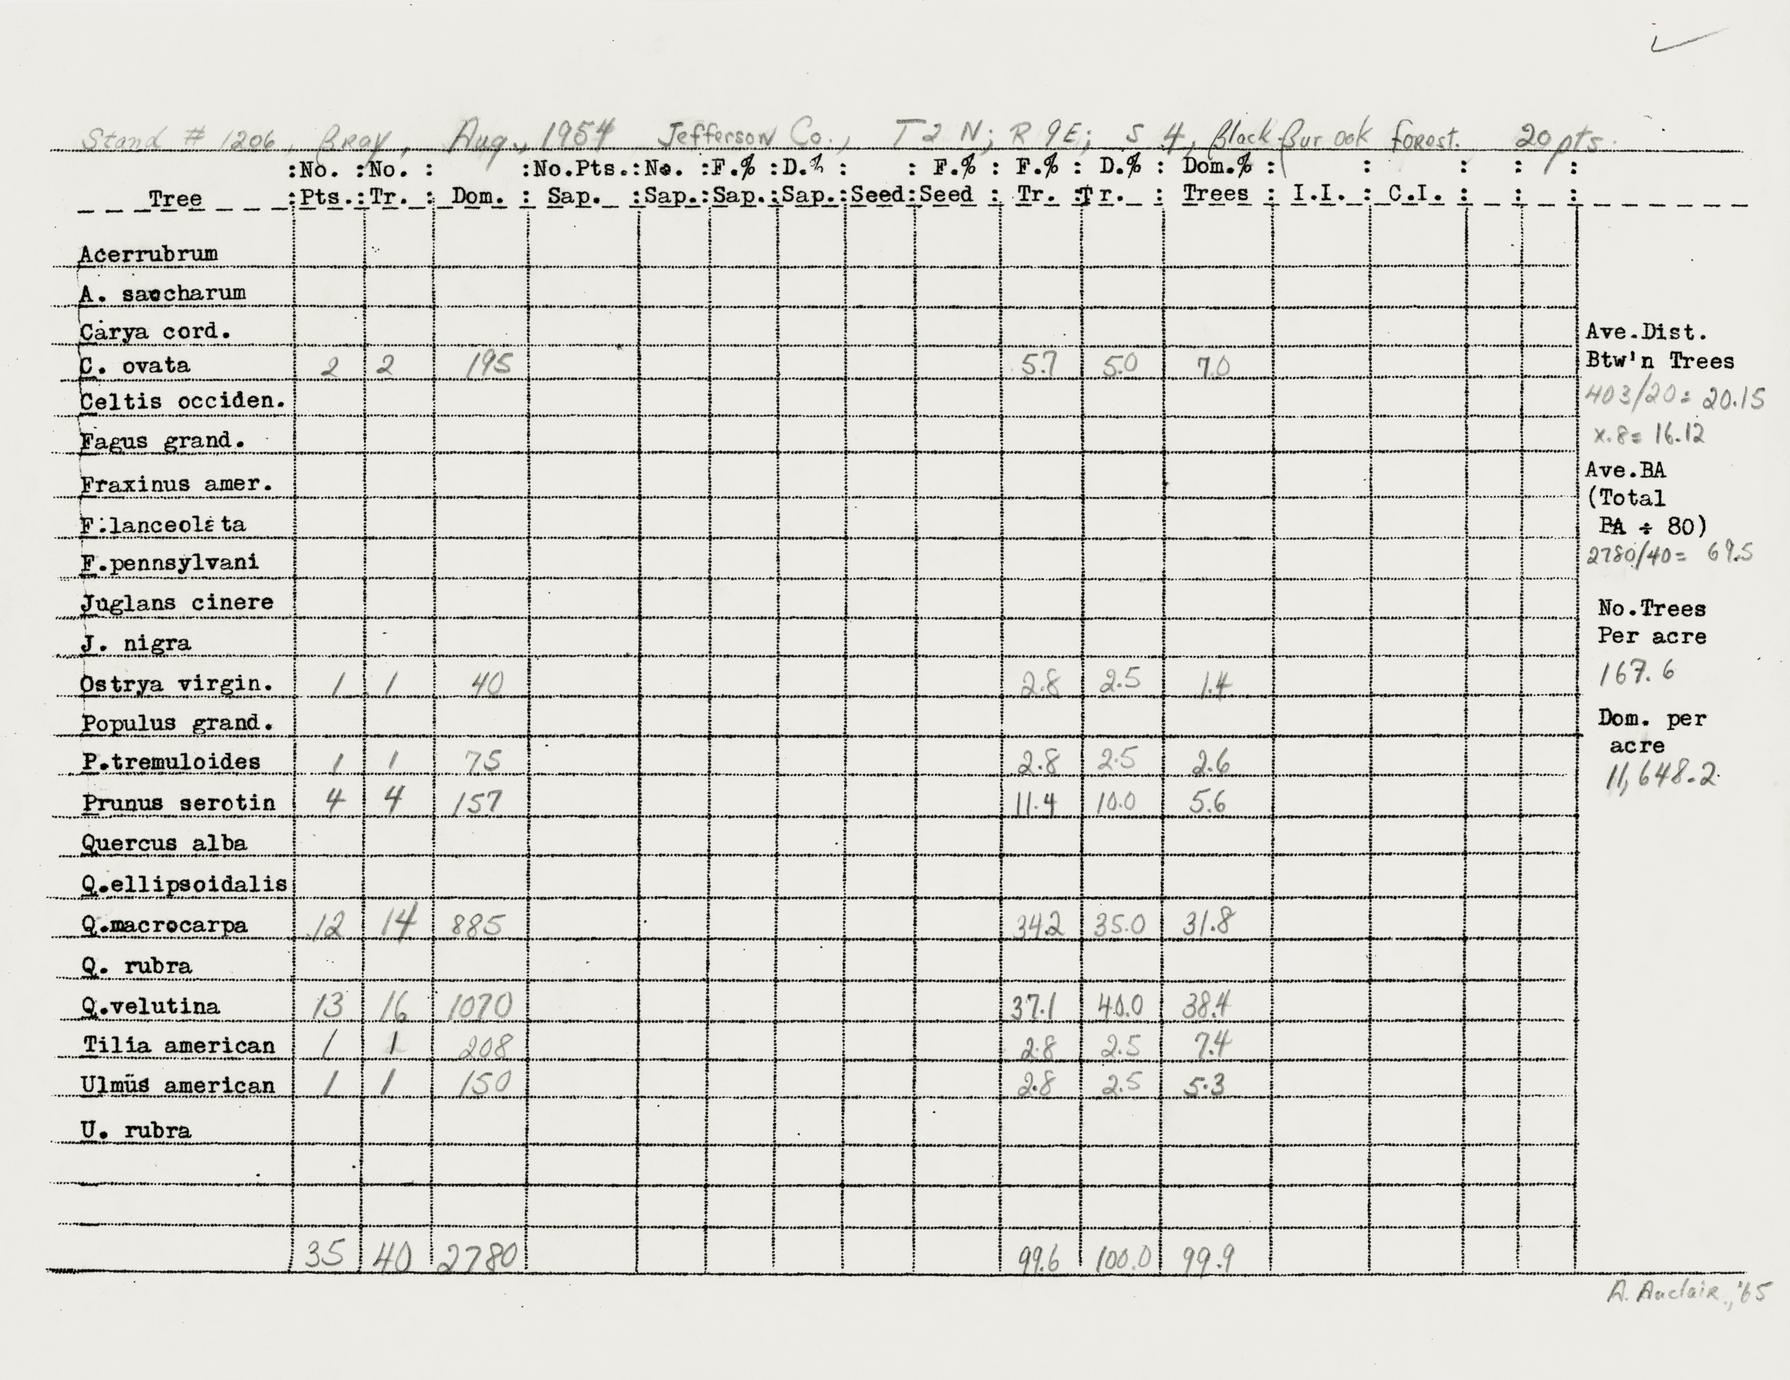 Stand # 1206, Bray, Aug., 1954 Jefferson Co., T2N; R9E; S 4, Black Bur oak forest. 20 pts.
:No. :No. : :No.Pts.:No. :F.% :D.% : : F.% : F.% : D.% : Dom.% : : : : :
Tree :Pts.:Tr. : Dom. : Sap. :Sap.:Sap.:Sap.:Seed:Seed : Tr. :Tr. : Trees : I.I. : C.I. : : :
Acerrubrum
A. saccharum
Carya cord.
Ave.Dist.
C. ovata 2 2 195 5.7 5.0 7.0
Btw'n Trees
Celtis occiden.
403/20= 20.15
Fagus grand.
x.8= 16.12
Ave.BA
Fraxinus amer.
(Total
F.lanceolata
BA ÷ 80)
F.pennsylvani
2780/40= 69.5
Juglans cinere
No.Trees
J. nigra
Per acre
Ostrya virgin. 1 1 40 2.8 2.5 1.4
167.6
Populus grand.
Dom. per
P.tremuloides 1 1 75 2.8 2.5 2.6
acre
Prunus serotin 4 4 157 11.4 10.0 5.6
11,648.2
Quercus alba
Q.ellipsoidalis
Q.macrocarpa 12 14 885 34.2 35.0 31.8
Q. rubra
Q.velutina 13 16 1070 37.1 40.0 38.4
Tilia american 1 1 208 2.8 2.5 7.4
Ulmus american 1 1 150 2.8 2.5 5.3
U. rubra
35 40 2780 99.6 100.0 99.9
A. Auclair., '65